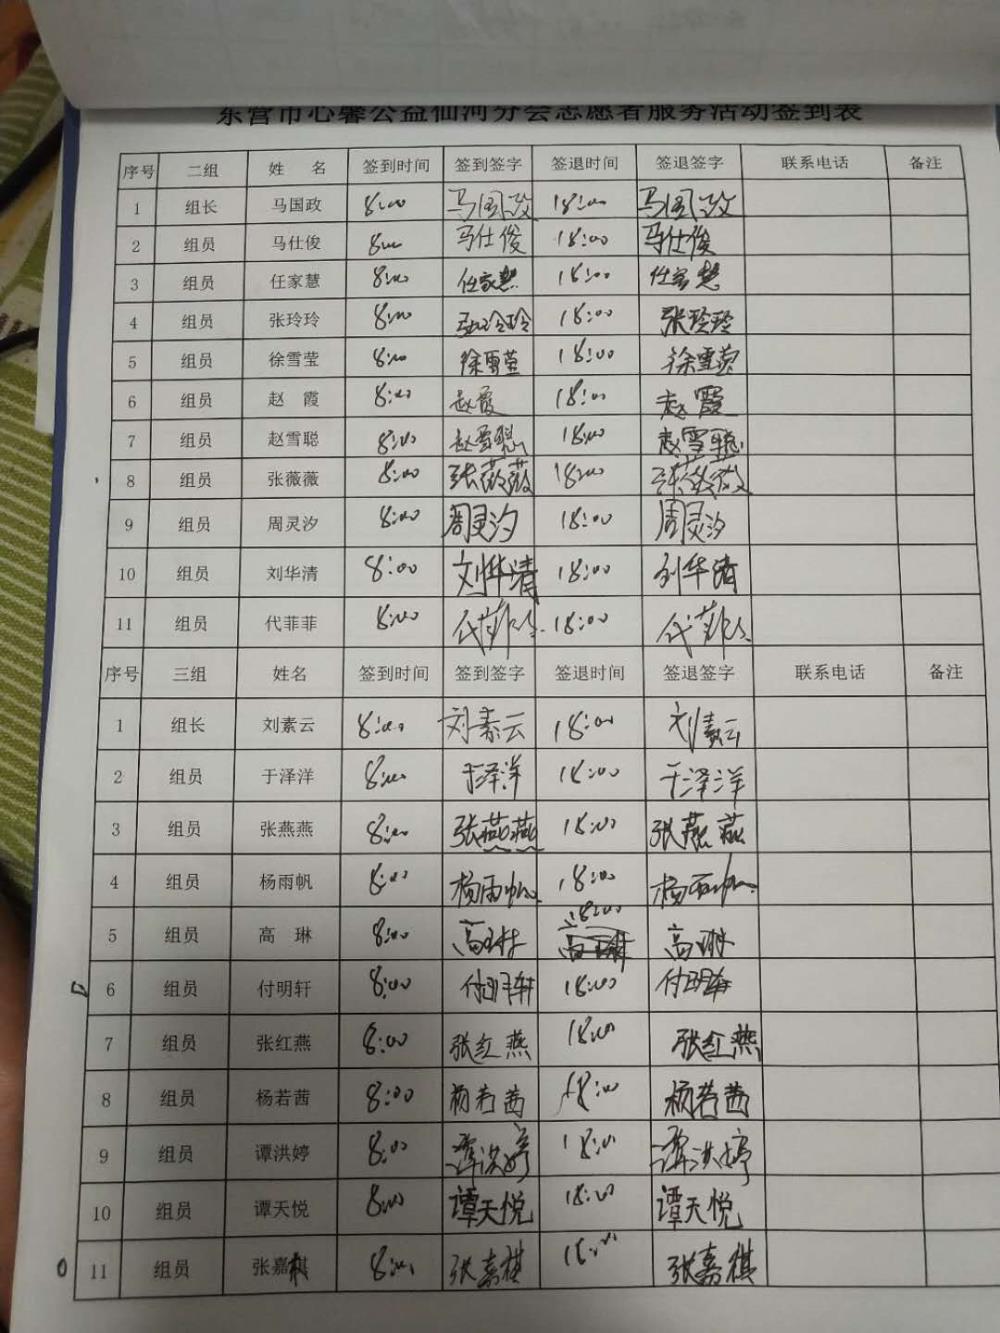 东营市心馨公益仙河分会志愿者服务活动签到表
序号 二组 姓 名 签到时间 签到签字 签退时间 签退签字 联系电话 备注
1 组长 马国政 8:00 马国政 18:00 马国政
2 组员 马仕俊 8:00 马仕俊 18:00 马仕俊
3 组员 任家慧 8:00 任家慧 18:00 任家慧
4 组员 张玲玲 8:00 张玲玲 18:00 张玲玲
5 组员 徐雪莹 8:00 徐雪莹 18:00 徐雪莹
6 组员 赵 霞 8:00 赵霞 18:00 赵霞
7 组员 赵雪聪 8:00 赵雪聪 18:00 赵雪聪
8 组员 张薇薇 8:00 张薇薇 18:00 张薇薇
9 组员 周灵汐 8:00 周灵汐 18:00 周灵汐
10 组员 刘华清 8:00 刘华清 18:00 刘华清
11 组员 代菲菲 8:00 代菲菲 18:00 代菲菲
序号 三组 姓名 签到时间 签到签字 签退时间 签退签字 联系电话 备注
1 组长 刘素云 8:00 刘素云 18:00 刘素云
2 组员 于泽洋 8:00 于泽洋 18:00 于泽洋
3 组员 张燕燕 8:00 张燕燕 18:00 张燕燕
4 组员 杨雨帆 8:00 杨雨帆 18:00 杨雨帆
5 组员 高 琳 8:00 高琳 18:00 高琳 高琳
6 组员 付明轩 8:00 付明轩 18:00 付明轩
7 组员 张红燕 8:00 张红燕 18:00 张红燕
8 组员 杨若茜 8:00 杨若茜 18:00 杨若茜
9 组员 谭洪婷 8:00 谭洪婷 18:00 谭洪婷
10 组员 谭天悦 8:00 谭天悦 18:00 谭天悦
11 组员 张嘉棋 8:00 张嘉棋 18:00 张嘉棋